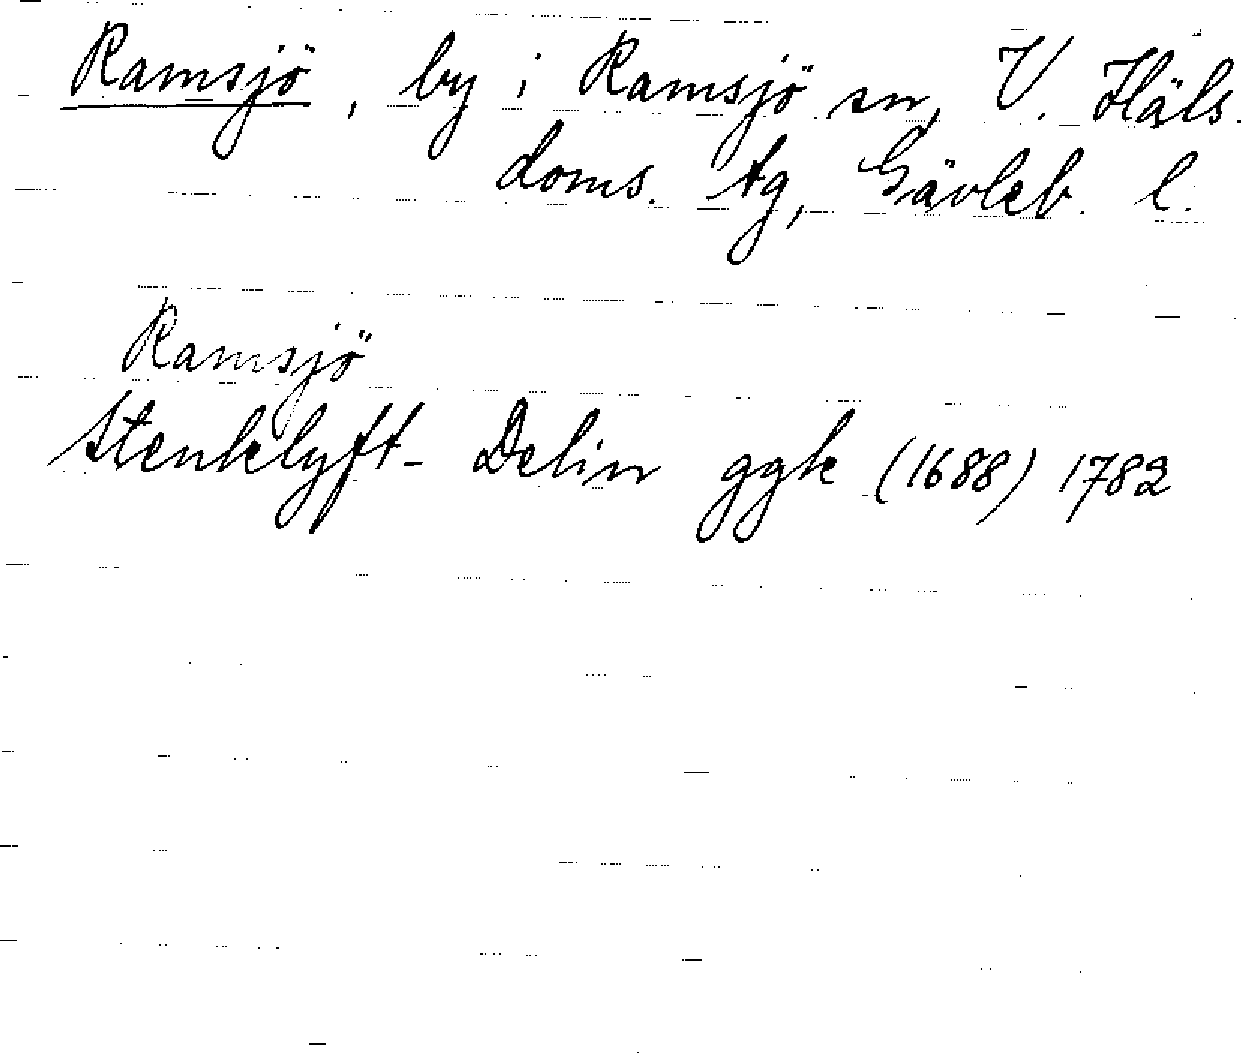 Ramsjö, by i Ramsjö sn, V. Häls.
doms. tg, Gävleb. l.
Ramsjö
Stenklyft- Delin ggk (1688) 1782